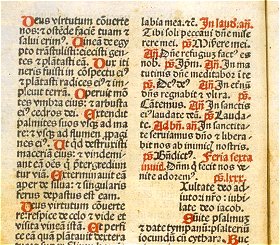 Deus virtutum cōuerte
nos: ⁊ ostēde faciē tuam ⁊
salui erim⁹. Uineā de egy
pto trāstulisti: eiecisti gen
tes ⁊ plātasti eā. Dux iti
neris fuisti in cōspectu ei⁹
⁊ plātasti radices ei⁹
⁊ impleuit terrā. Operuit mō
tes vmbra eius: ⁊ arbusta
ei⁹ cedros dei. Extendit
palmites suos vsq⁊ ad ma
re: ⁊ vsq⁊ ad flumen ꝓpagi
nes ei⁹. Ut qd destruxisti
maceriā eius: ⁊ vindemi
ant eā oēs q pretergrediun
tur viā. Exterminauit eā
aper de silua: ⁊ singularis
ferus depastus est eam.
Deus virtutum conuerte
re: respice de celo ⁊ vide et
visita vineam
labia mea. In laud. añ.
Tibi soli peccaui dñe mise
rere mei. ps Miserere mei.
Añ Dñe refugiuʒ fact⁹ es
nos. ps Ipm. Añ In ma
tutinis dñe meditabor ī te
ps De⁹ de⁹ Añ
ps
Cātemus. Añ In sanctis
ei⁹ laudate eū. ps Laudate.
Ad bñ. añ In sanctitate
seruiamus dño ⁊ libera
bit nos ab inimicis nostris.
ps Bñdict⁹. Feria sexta
inuit. Dñm q fecit nos ve
nite adorem⁹. ps lxxx.
Xultate deo ad
iutori nro: iubi
late deo iacob.
Sumite psalmum ⁊
date tympanū: psalteri
um iocundū cū cythara